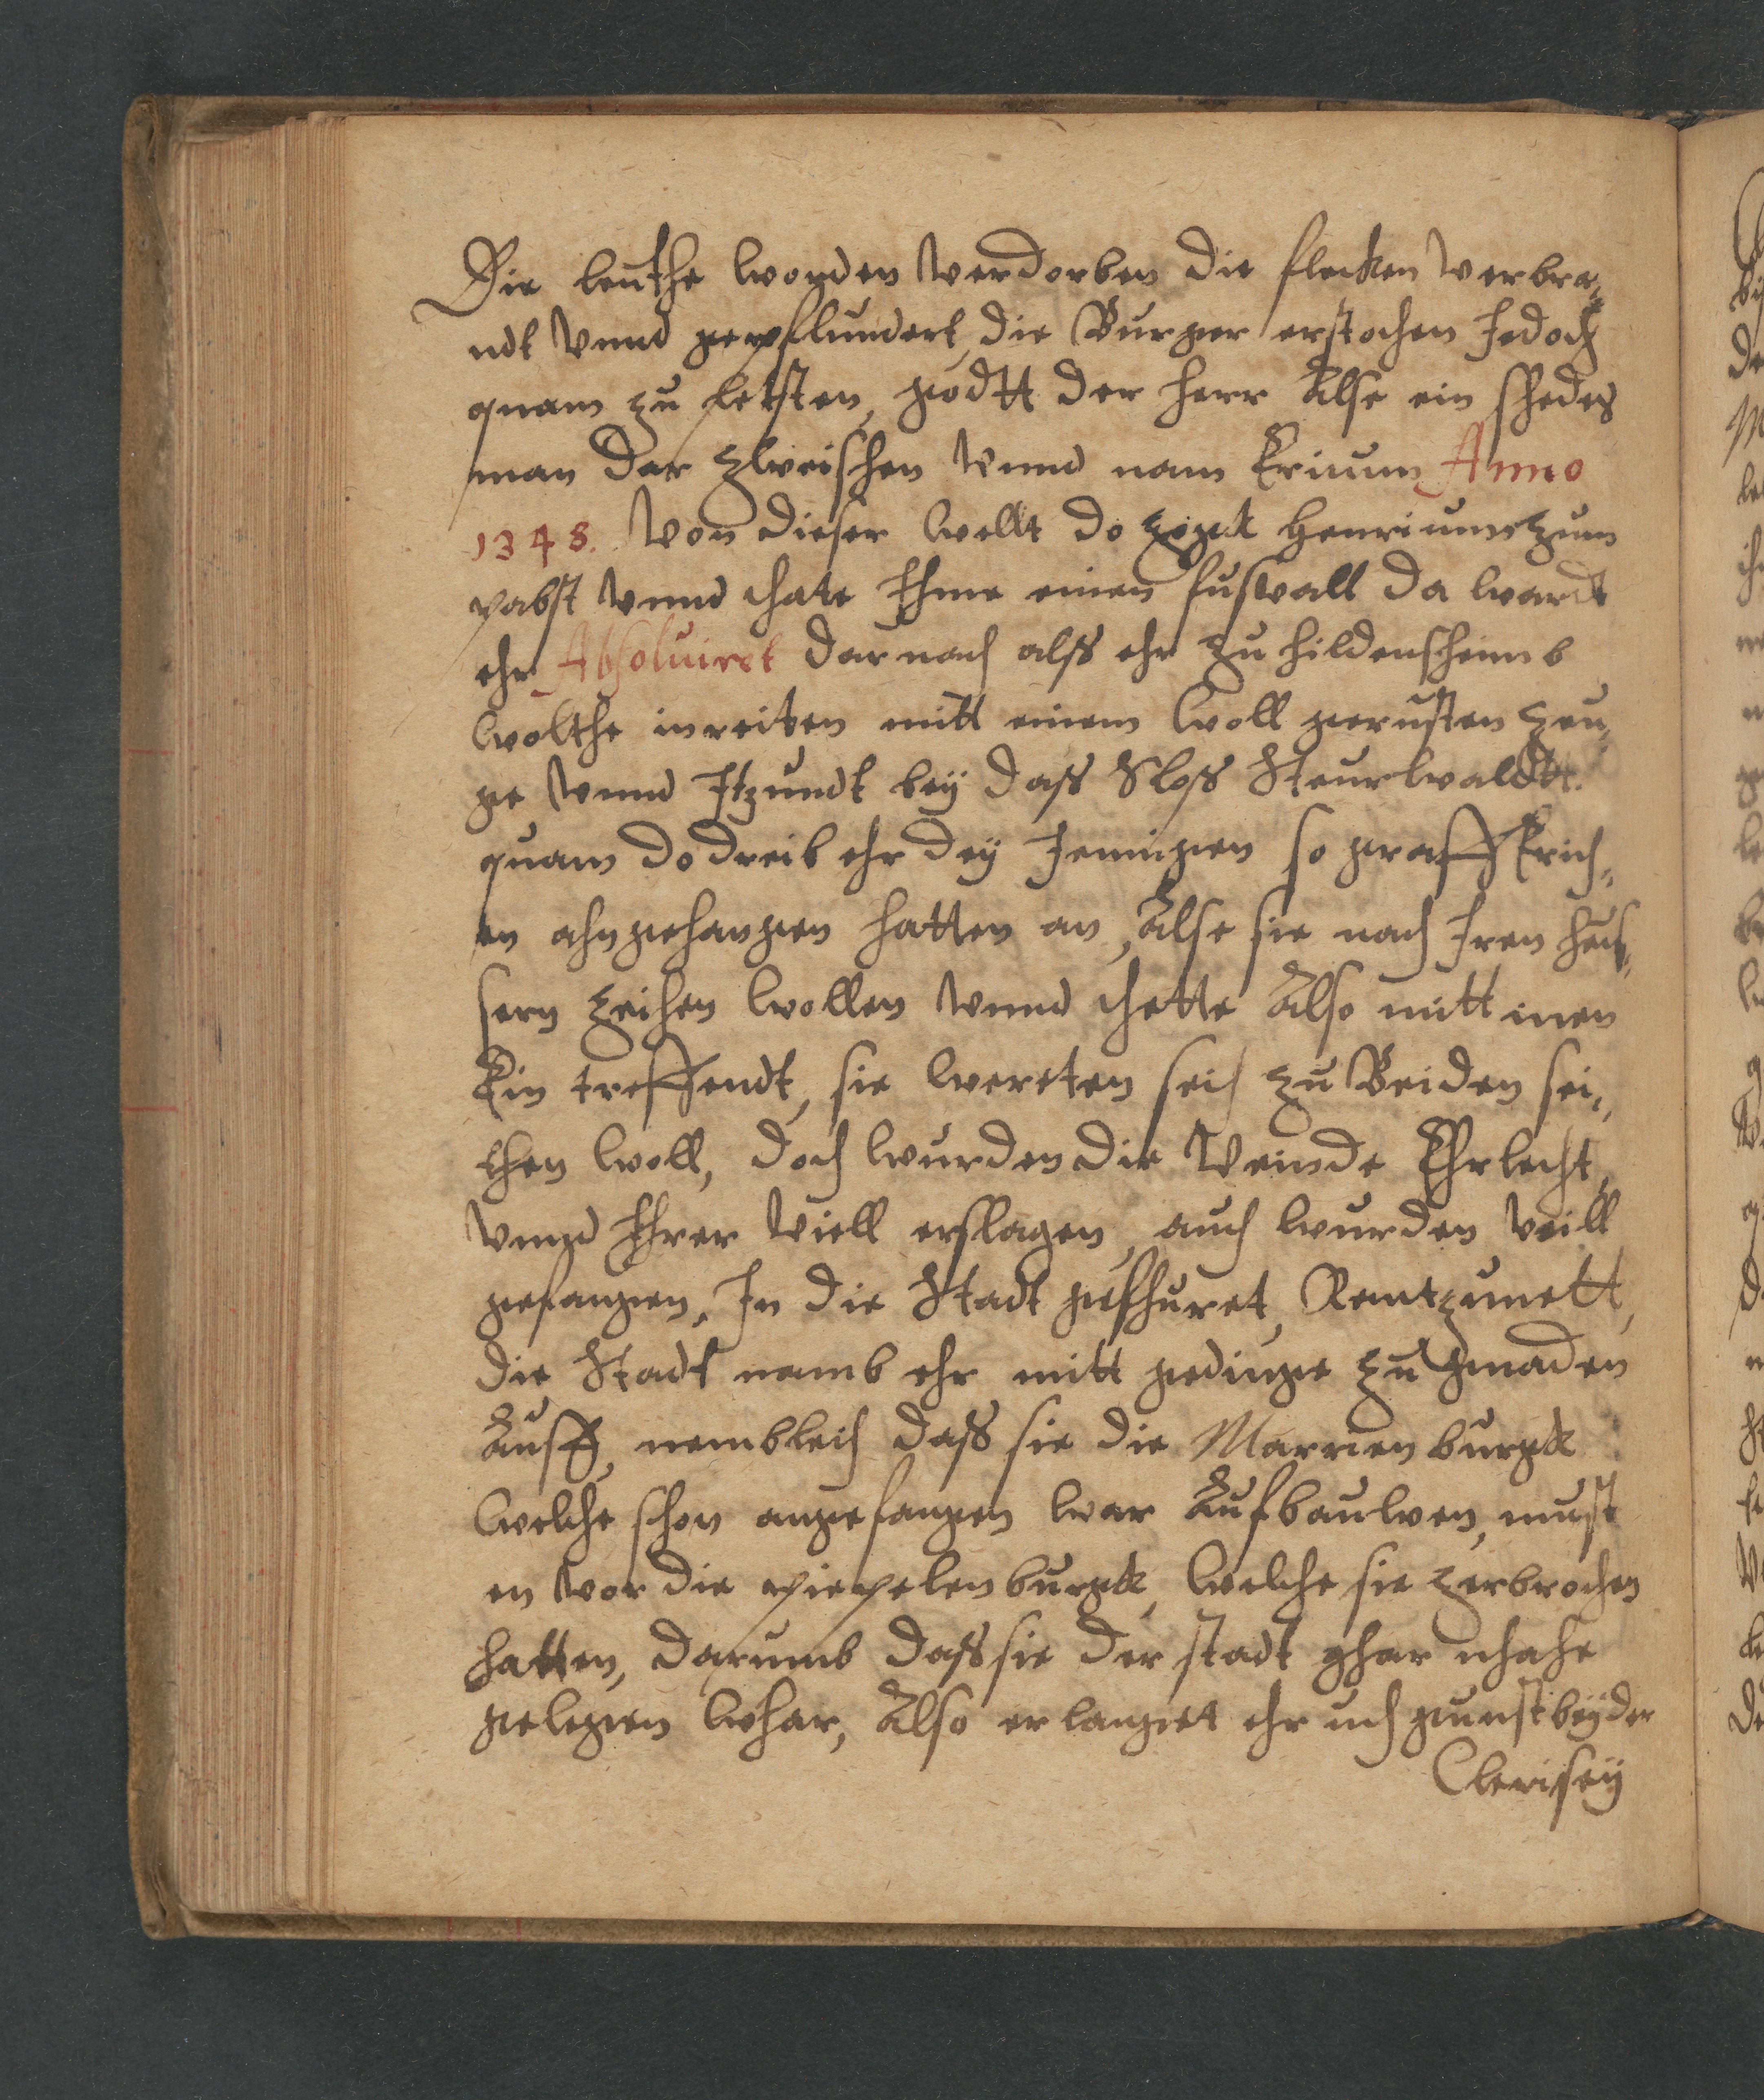 Die leuthe worden verdorben die flecken verbra,
ndt vnnd gepflundert, die Burger erstochen Jedoch
quam zu letsten, godtt der herr Alse ein schedes
man dar zwischen vnnd nam Ericum Anno
1348. von dieser wellt do zogk Henricum zum
pabst vnnd thate Ihme einen fusvall da wardt
ehr Absoluiret darnach alss ehr zu hildensheimb
wolthe inreiten mitt einem woll gerusten zeu,
ge vnnd Itzundt bey dass Sloss Steurwaldt.
quam do dreib ehr dey Jennigen so graff Erich,,
en ahngehangen hatten an, Alse sie nach Iren heus,,
sern zeihen wollen vnnd thette Also mitt inen
Ein treffendt, sie wereten seich zu Beiden sei,,
then woll, doch wurden die veinde Ehrlecht,
vnnd Ihrer viell erslagen, auch wurden veill
gefangen, In die Stadt gefhuret, Rantzunett,
die Stadt namb ehr mitt gedinge zu gnaden
Auff, nembleich dass sie die Marrienburgk
welche schon angefangen war Aufbauwen, must
en vor die piepelenburgk, welche sie zerbrochen
hatten, darumb dass sie der stadt ghar nhahe
gelegen whar, Also erlanget ehr uch gunst bey der
Clerisey